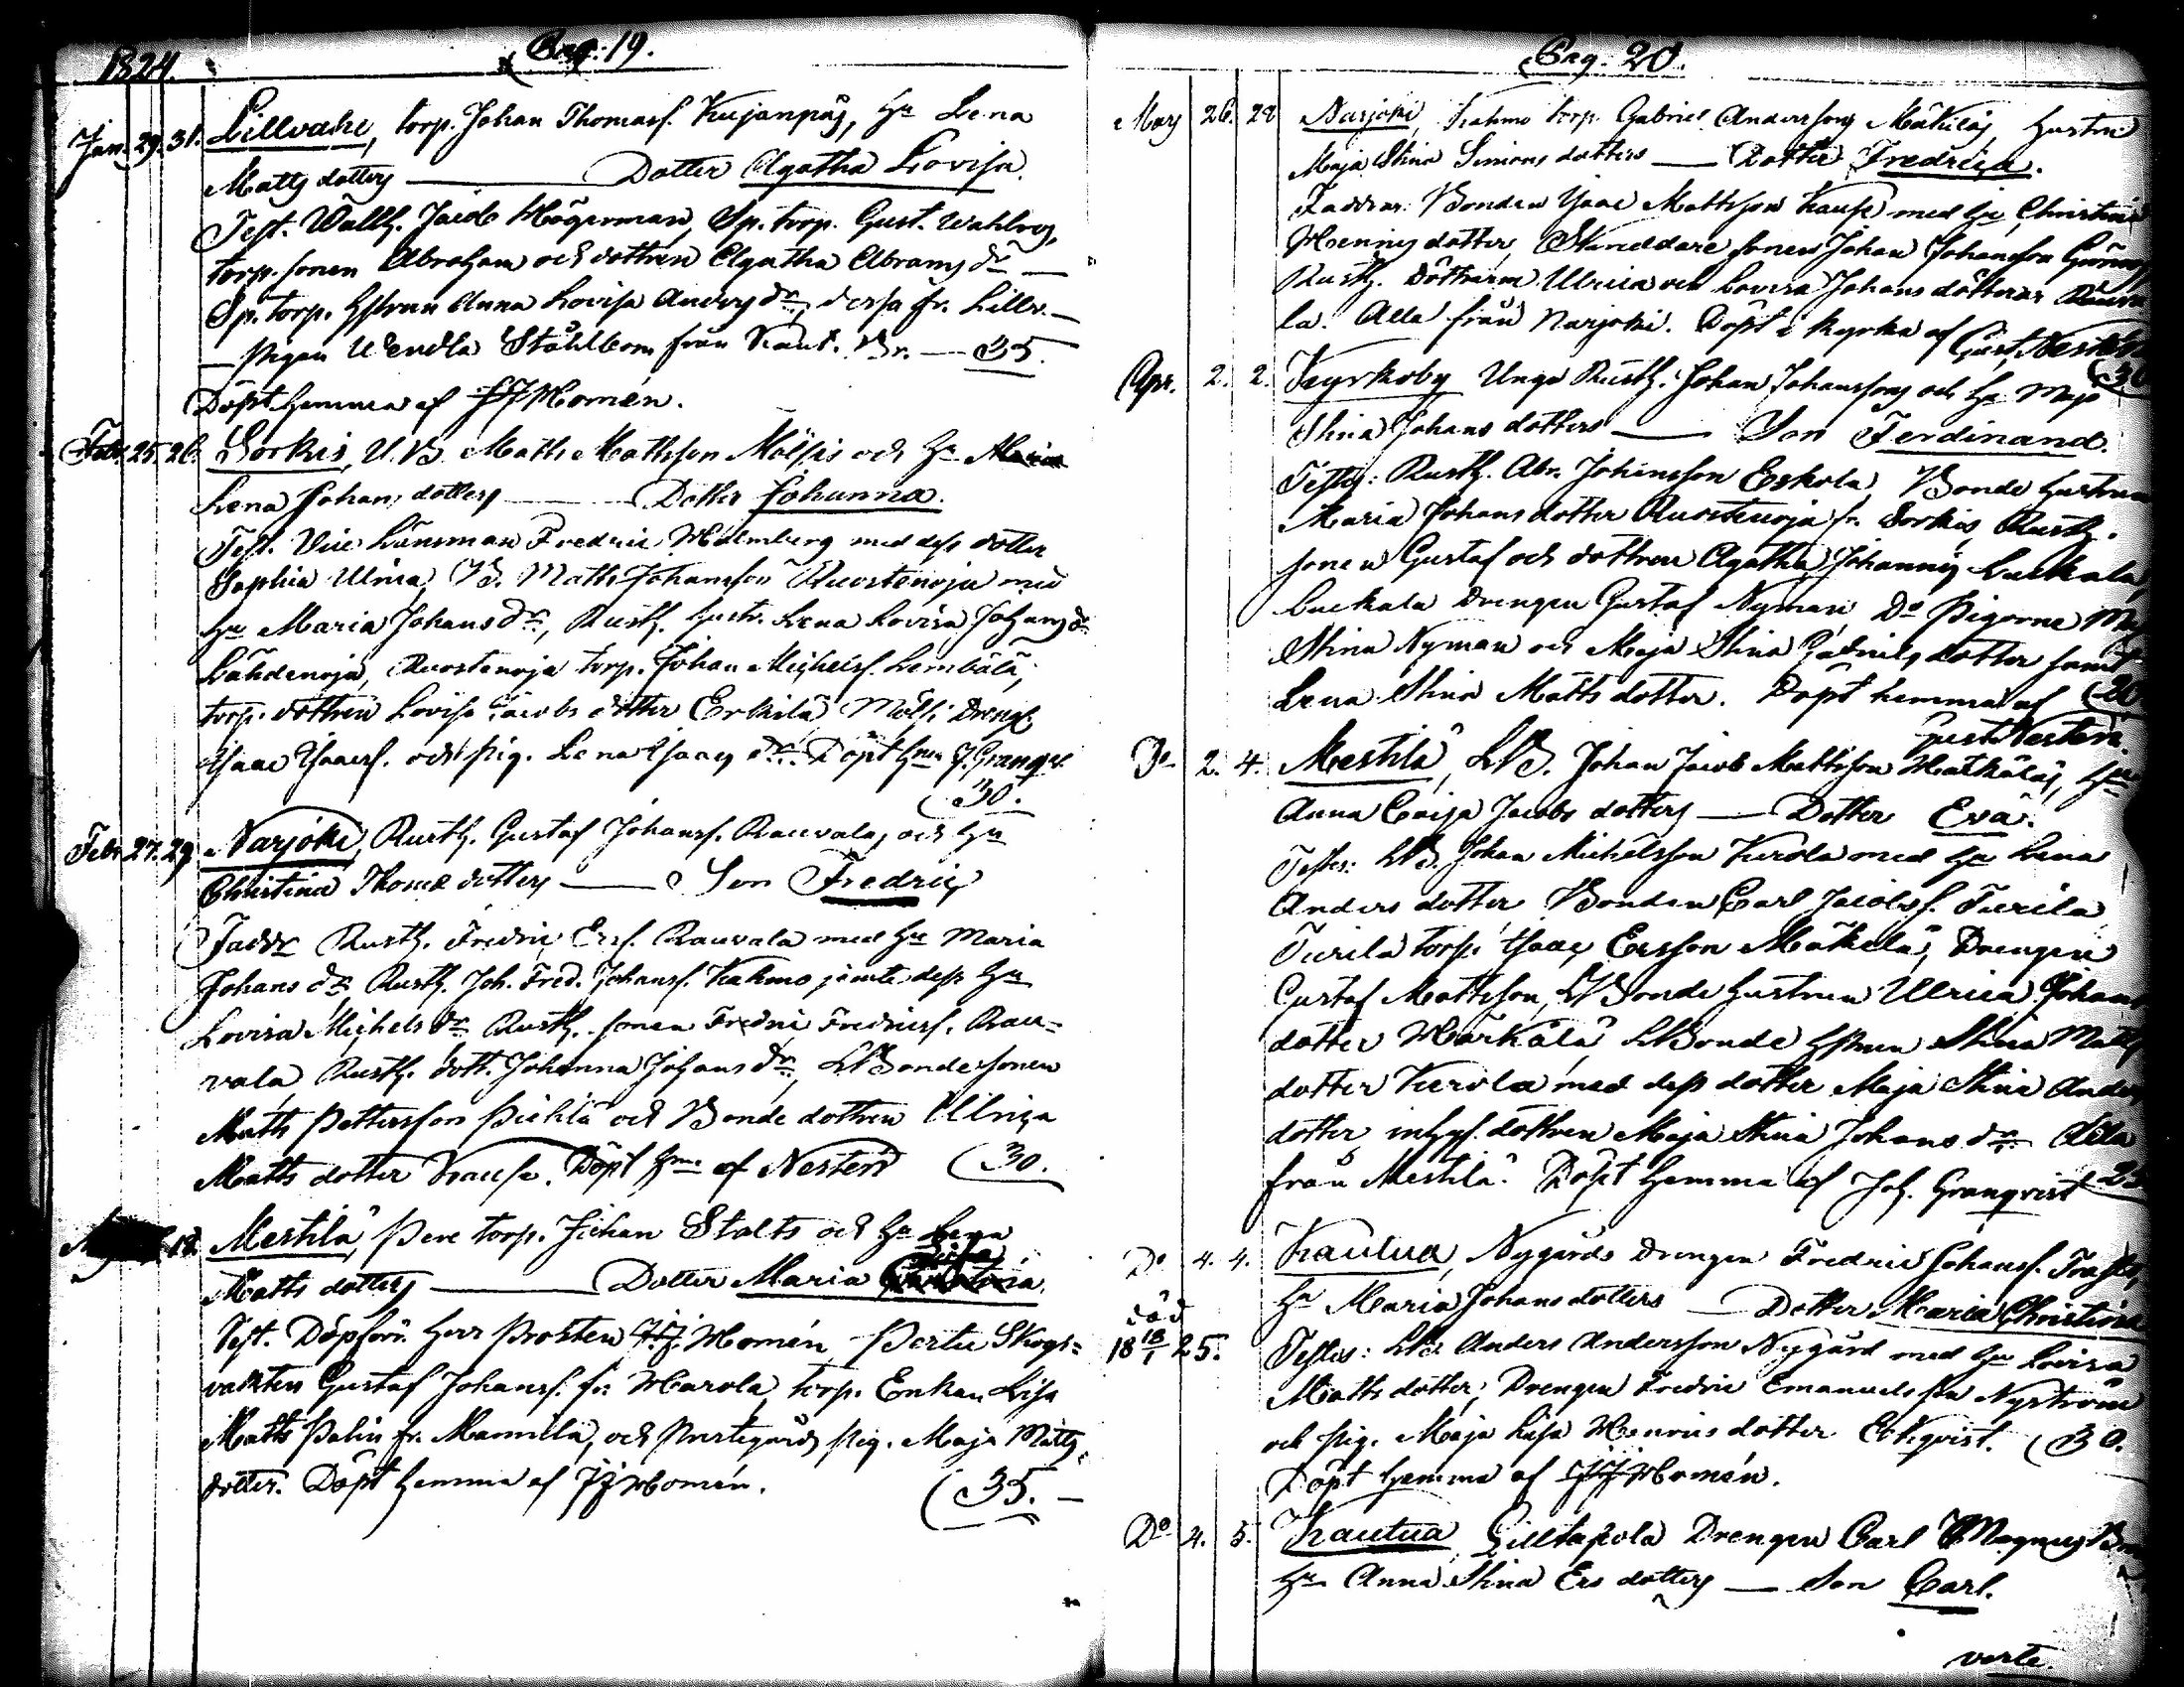 1824.
Pag. 19.
Jan. 29. 31. Lillvahe, torp. Johan Thomasf. Kujanpääs, Hu Lena
Matts dotters — Dotter Agatha Lovisa.
Test. Wallb. Jacob Högerman, Sp. torp. Gust. Wahlberg,
torp. sonen Abraham och dottren Agatha Abrams dr —
Sp. torp. Hustrun Anna Lovisa Anders dr, dessa fr. Lillv. —
— pigan Wendla Ståhlbom från Kaut. Br. — 35.
Döpt hemma af JJ Homén.
Febr. 25. 26. Sorkis, U.B. Matts Mattsson Mälsis och Hu
Lena Johans dotters — Dotter Johanna.
Test. Vice Länsman Fredric Malmberg med dess dotter
Sophia Ulrica, B. Matts Johansson Ruostenoja med
Hu Maria Johans dr, Rusth. Hustr. Lena Lovisa Johans dr
Lähdenoja, Ruostenoja torp. Johan Michelsf. Lembälä,
torp. dottren Lovisa Jacobs dotter Erkilä Mälsi Dreng.
Isaac Isaacsf. och pig. Lena Isaacs dr. Döpt Hma J. Granqv.
(30.
Febr. 27. 29. Narjoki, Rusth. Gustaf Johansf. Rauvalas, och Hu
Christina Thomæ dotters — Son Fredric
Faddr. Rusth. Fredric Ersf. Rauvala med Hu Maria
Johans dr Rusth. Joh. Fred. Johansf. Kahmo jemte dess Hu
Lovisa Michels dr Rusth. sonen Fredric Fredricsf. Rau-
vala, Rusth. dott. Johanna Johans dr, LBonde sonen
Matts Pettersson Pichlä och Bonde dottren Ulrica
Matts dotter Krause. Döpt Hma af Nesten (30.
12. Mestilä, Pere torp. Johan Stolts och Hu Lena
Matts dotters — Dotter Maria
Test. Döpförr. Herr Prosten JJ. Homén, Pertu Skogs-
vakten Gustaf Johansf. fr. Harola, torp. Enkan Lisa
Matts Palin fr. Mannila, och Prestegårds pig. Maja Matts-
dotter. Döpt hemma af JJ Homén. (35. —
Pag. 20.
Mars 26. 28 Narjoki, Kahmo torp. Gabriel Anderssons Mäkiläs, Hustru
Maja Stina Simons dotters — Dotter Fredrica.
Faddrar: Bonden Isaac Mattsson Krause med Hu, Christina
Hennings dotter, Skreddare sonen Johan Johansson
Rusth. döttrarne Ulrica och Lovisa Johans döttrar Rauva
la. Alla från Narjoki. Döpt i kyrka af Gust. Nestén
(30
Apr. 2. 2. Kyrkoby Unga Rusth. Johan Johanssons och Hu Maja
Stina Johans dotters — Son Ferdinand.
Testes: Rusth. Abr. Johansson Eskola, Bonde Hustrun
Maria Johans dotter Ruostenoja fr. Sorkis, Rusth.
sonen Gustaf och dottren Agatha Johannis Luckala,
Luckala Drengen Gustaf Nyman, Do Pigorne
Stina Nyman och Maja Stina Gabriels dotter samt
Lena Stina Matts dotter. Döpt hemma af
Gust. Nestén.
Do 2. 4. Mestilä, LB. Johan Jacob Mattsson Matkäläs, Hu
Anna Caisa Jacobs dotters — Dotter Eva.
Testes: LB. Johan Michelsson Kerola med Hu Lena
Anders dotter Bonden Carl Jacobsf. Turila
Turila torp. Isaac Ersson Mäkelä, Drengen
Gustaf Mattsson, LBonde Hustrun Ulrica Johans
dotter Härkälä, LBonde Hustrun Stina Matts
dotter Kerola med dess dotter Maja Stina Anders
dotter, inhys. dottren Maja Stina Johans dr Alla
från Mestilä. Döpt hemma af Joh. Granqvist
Do 4. 4. Kautua, Nygårds Drengen Fredric Johansf.
död Hu Maria Johans dotters — Dotter Maria Christina
18 18/1 25. Testes: LB. Anders Andersson Nygård med Hu Lovisa
Matts dotter; Drengen Fredric Emanuelsson Nyström
och pig. Maja Lisa Henrics dotter Ekqvist. (30.
Döpt hemma af JJ Homén.
Do 4. 5. Kautua Gilltapola Drengen Carl Magnus
Hu Anna Stina Ers dotters — Son Carl.
verte.